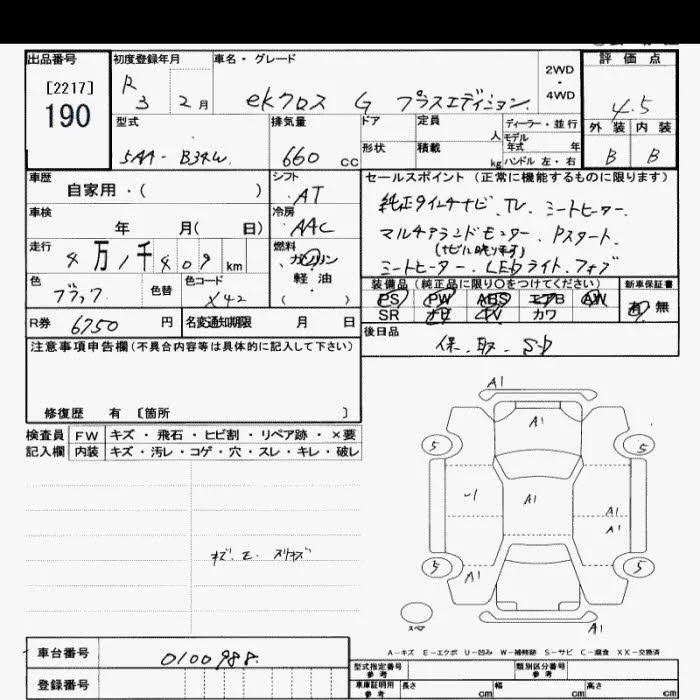 出品番号
[2217]
190
初度登録年月
R 3 2月
車名・グレード
ekクロス G プラスエディション
2WD
・
4WD
評価点
4.5
外装 内装
B B
型式
5AA-B34W
排気量
660 cc
ドア
形状
定員 人
積載 kg
ディーラー・並行
モデル
年式 年
ハンドル 左・右
車歴
自家用・( )
シフト
AT
車検
年 月( 日)
冷房
AAC
走行
4万1千409km
燃料
ガソリン
軽油
( )
色
ブラック
色替
色コード
X42
R券 6750 円
名変通知期限 月 日
セールスポイント(正常に機能するものに限ります)
純正9インチナビ.TV.シートヒーター.
マルチアラウンドモニター.Pスタート.
(ナビル映ります)
シートヒーター.LEDライト.フォグ
装備品(純正品に限り○をつけてください)
PS PW ABS エアB AW
SR ナビ TV カワ
新車保証書
有 無
後日品
保.取.SD
注意事項申告欄(不具合内容等は具体的に記入して下さい)
修復歴 有 [箇所 ]
検査員 FW キズ・飛石・ヒビ割・リペア跡・×要
記入欄 内装 キズ・汚レ・コゲ・穴・スレ・キレ・破レ
キズ.E.スリキズ
A1
A1
5
5
-1
A1
A1
A1
5
5
A1
スペア
A1
A-キズ E-エクボ U-凹み W-補修跡 S-サビ C-腐食 XX-交換済
車台番号 0100988.
登録番号
型式指定番号
参考
類別区分番号
参考
車庫証明用
参考
長さ cm 幅 cm 高さ cm